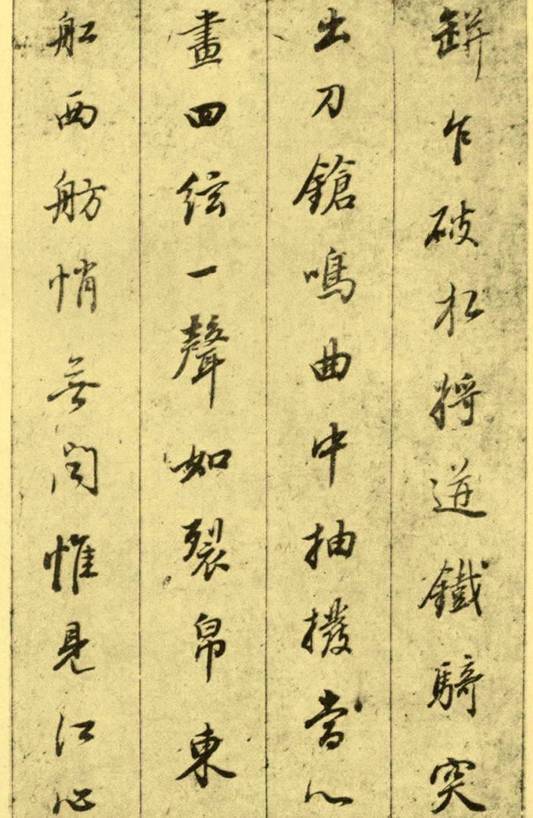 缾乍破水將迸鐵騎突
出刀鎗鳴曲中抽撥當心
畫四絃一聲如裂帛東
船西舫悄無聞惟見江心